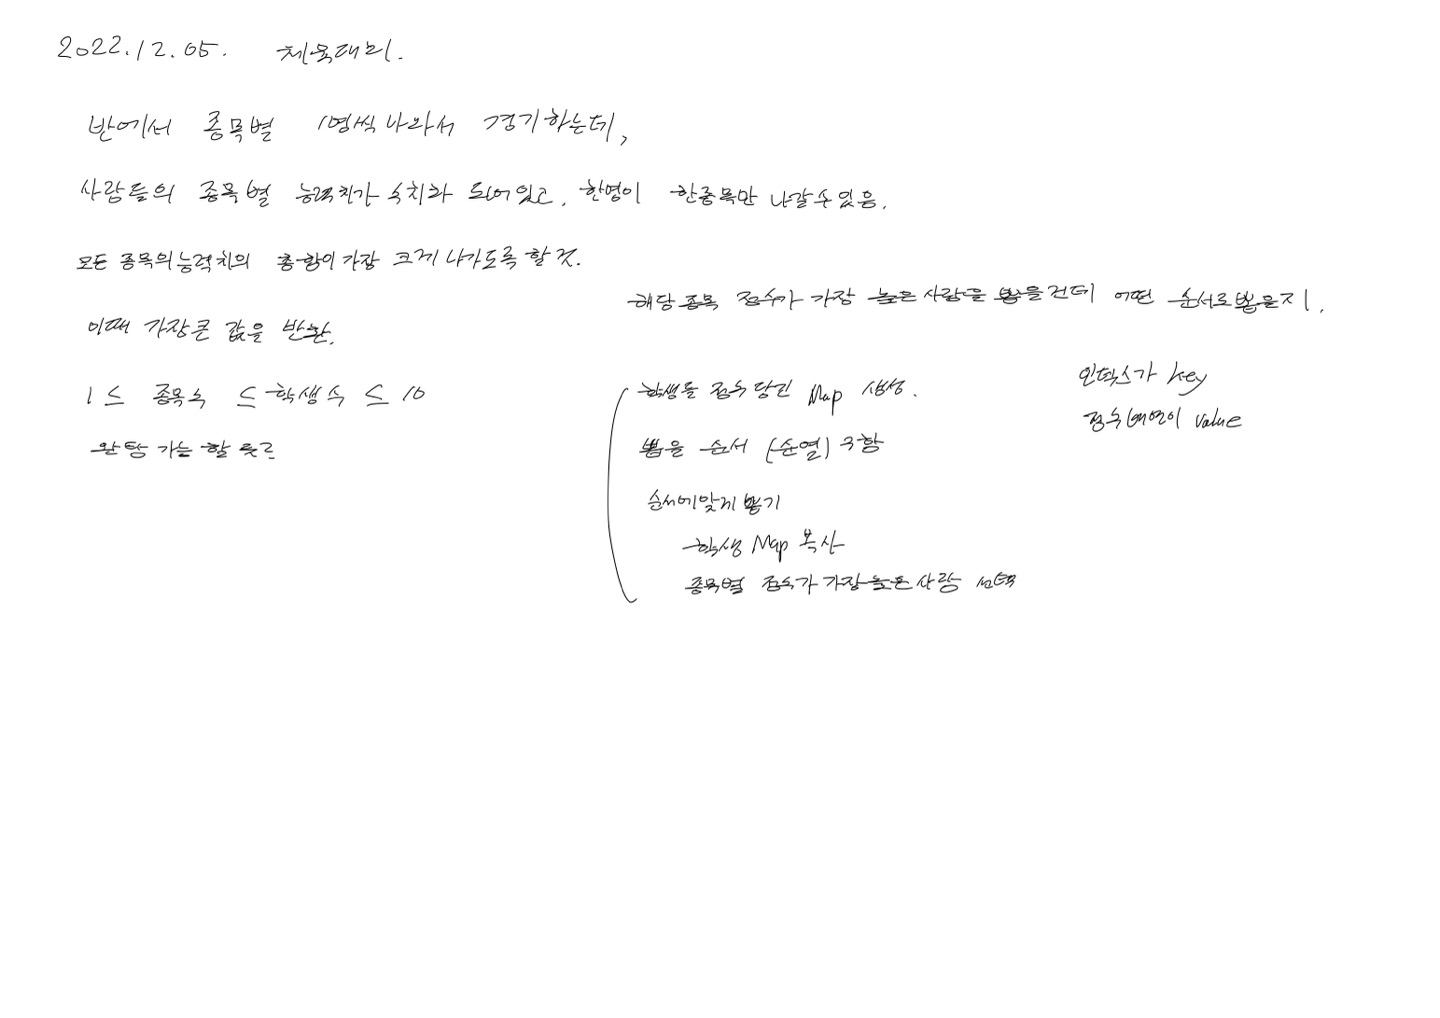 2022.12.05. 체육대회.
반에서 종목별 1명씩 나와서 경기하는데,
사람들의 종목별 능력치가 수치화 되어있고, 한명이 한종목만 나갈수 있음.
모든 종목의 능력치의 총합이 가장 크게 나가도록 할 것.
이때 가장 큰 값을 반환.
1 ≤ 종목수 ≤ 학생수 ≤ 10
완탐 가능 할 듯
해당 종목 점수가 가장 높은 사람을 뽑을건데 어떤 순서로 뽑을지.
학생들 점수 담긴 Map 생성.
뽑을 순서 (순열) 구함
순서에 맞게 뽑기
학생 Map 복사
종목별 점수가 가장 높은 사람 선택
인덱스가 key
점수배열이 value